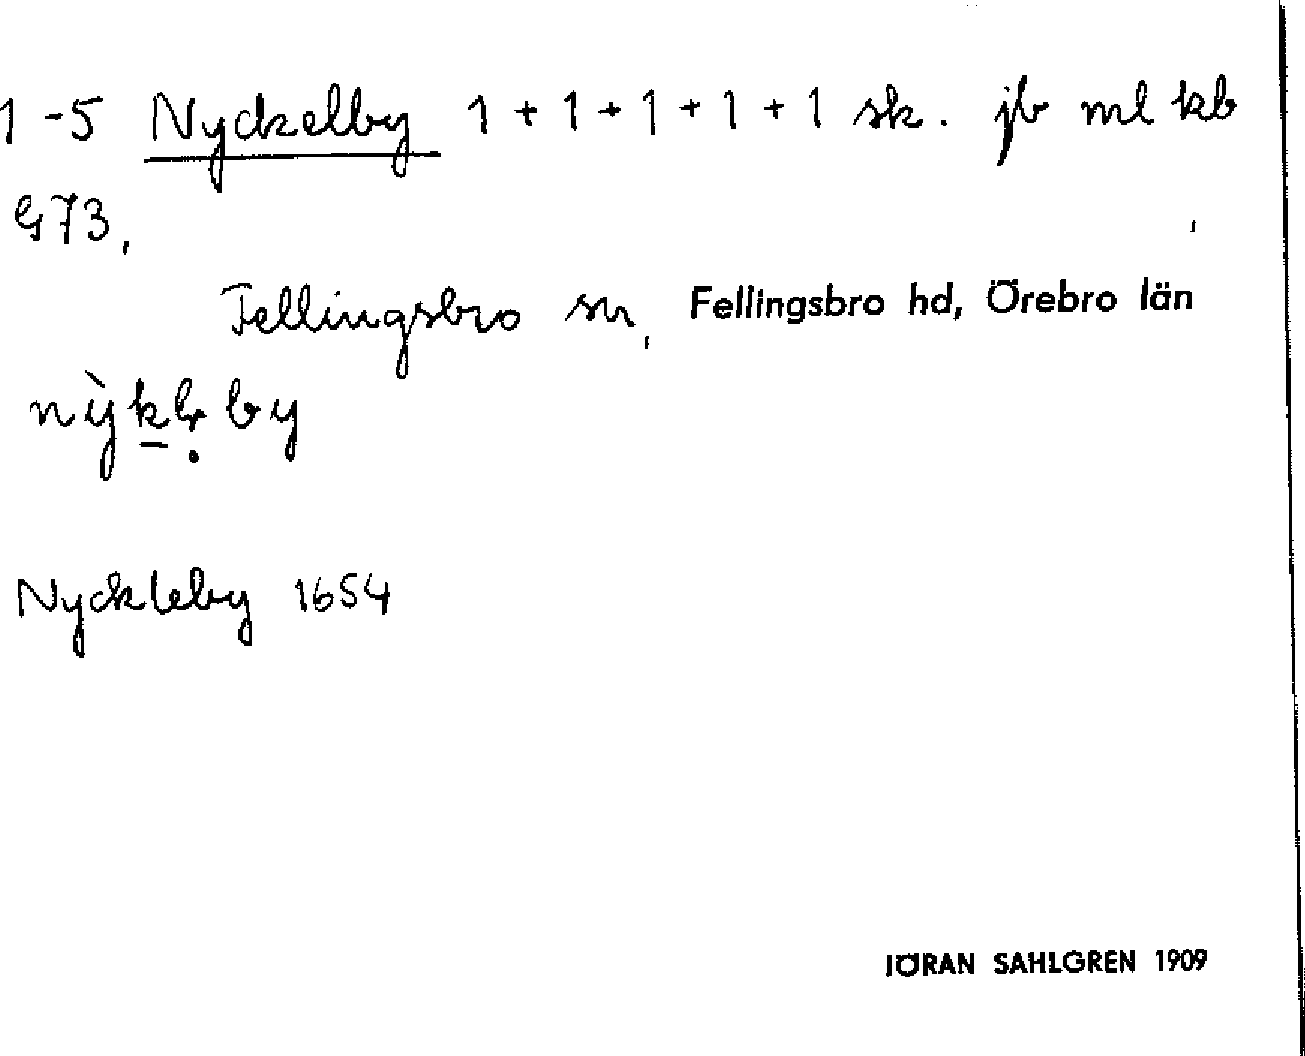 1-5 Nyckelby 1+1+1+1+1 sk. jb ml kb
G73,
Fellingsbro sn, Fellingsbro hd, Örebro län
by
Nyckleby 1654
JÖRAN SAHLGREN 1909